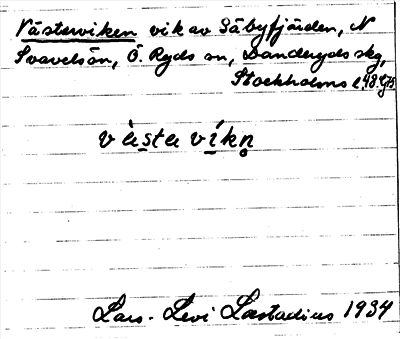 Västerviken vik av Säbyfjärden, N
Svavelsön, Ö. Ryds sn, Danderyds skg,
Stockholms l.
vàsta víkn̥
Lars-Levi Læstadius 1934